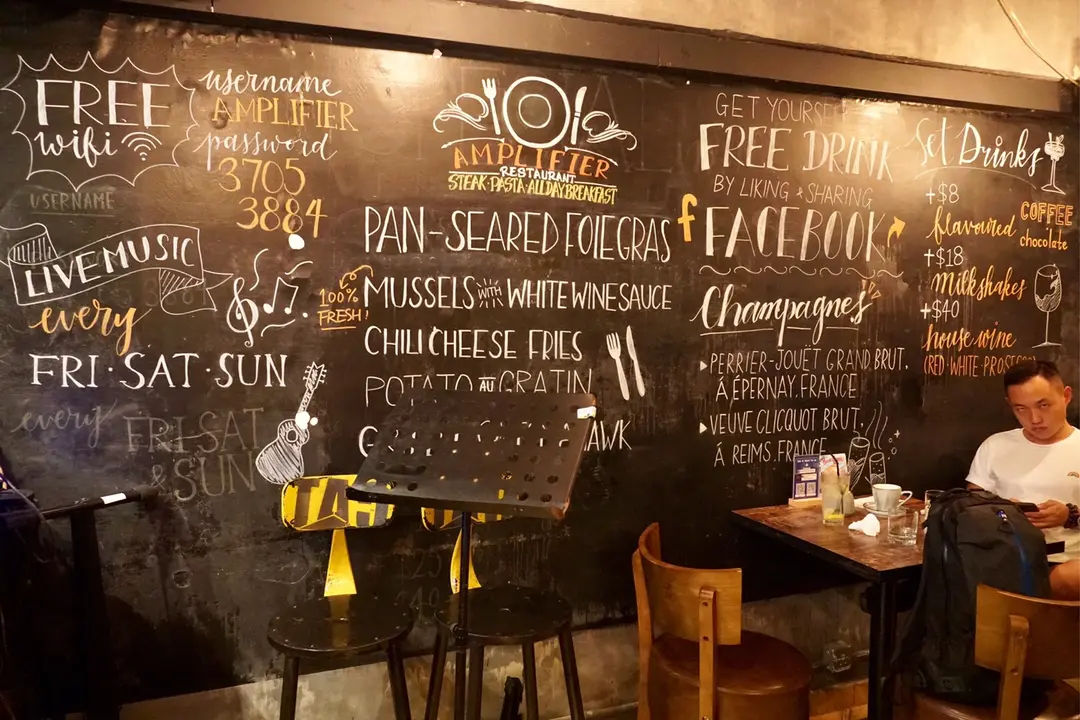 FREE
wifi
username
AMPLIFIER
password
3705
3884
USERNAME
LIVE MUSIC
every
FRI·SAT·SUN
every
FRI·SAT
& SUN
AMPLIFIER
RESTAURANT
STEAK·PASTA·ALLDAYBREAKFAST
PAN-SEARED FOIEGRAS
100%
FRESH!
MUSSELS WITH WHITE WINE SAUCE
CHILI CHEESE FRIES
POTATO AU GRATIN
GET
FREE DRINK
BY LIKING & SHARING
f FACEBOOK
Champagnes
PERRIER-JOUËT GRAND BRUT,
Á ÉPERNAY, FRANCE
VEUVE CLICQUOT BRUT,
Á REIMS, FRANCE
Set Drinks
+$8
flavoured
COFFEE
chocolate
+$18
Milkshakes
+$40
house wine
(RED·WHITE·PROSECCO